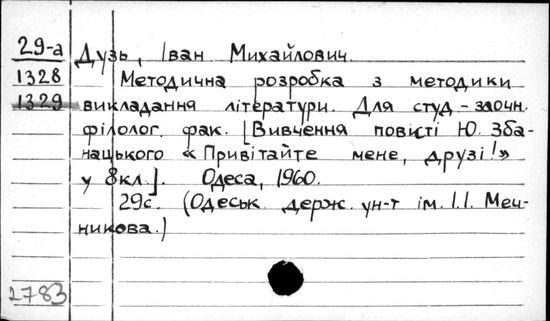 29-а Дузь, Іван Михайлович.
1328 Методична розробка з методики
1329 викладання літератури. Для студ-заочн.
філолог. фак. [Вивчення повісті Ю. Зба-
нацького «Привітайте мене, друзі!»
у 8кл.]. Одеса, 1960.
29с. (Одеськ. держ. ун-т ім. І.І. Меч-
никова.)
2783